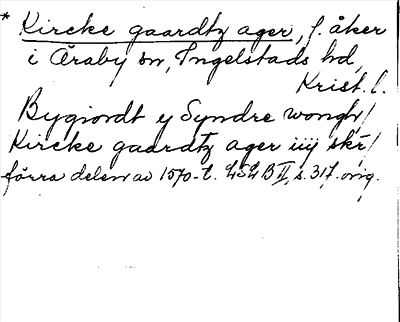 * Kircke gaardtz ager, f. åker
i Öraby sn, Ingelstads hd,
Krist. l.
Bygiordt y Syndre wongh/
Kircke gaardtz ager iiij skr/
förra delen av 1570-t. LSLB II, s. 317. orig.